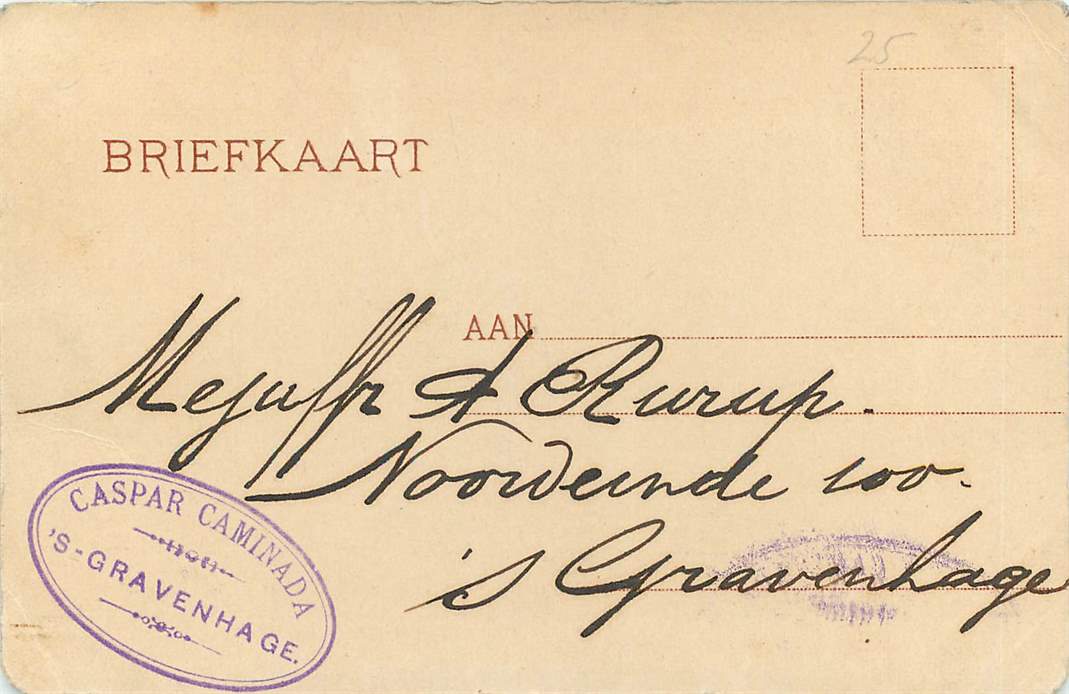 25
BRIEFKAART
AAN
Mejuffr A Rurup.
Noordeinde 100.
's Gravenhage
CASPAR CAMINADA
'S-GRAVENHAGE.